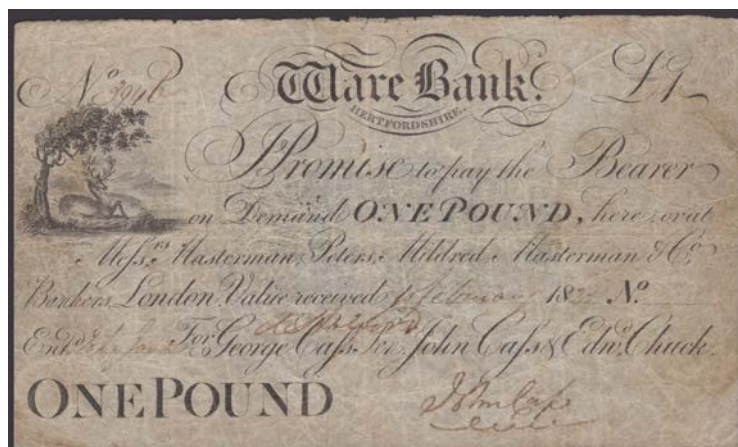 No
Ware Bank. £1
HERTFORDSHIRE.
I Promise to pay the Bearer
on Demand ONE POUND, here or at
Messrs. Masterman, Peters, Mildred, Masterman & Co.
Bankers London. Value received February 182 No.
Entd. For George Cass Senr. John Cass & Edwd. Chuck.
ONE POUND John Cass